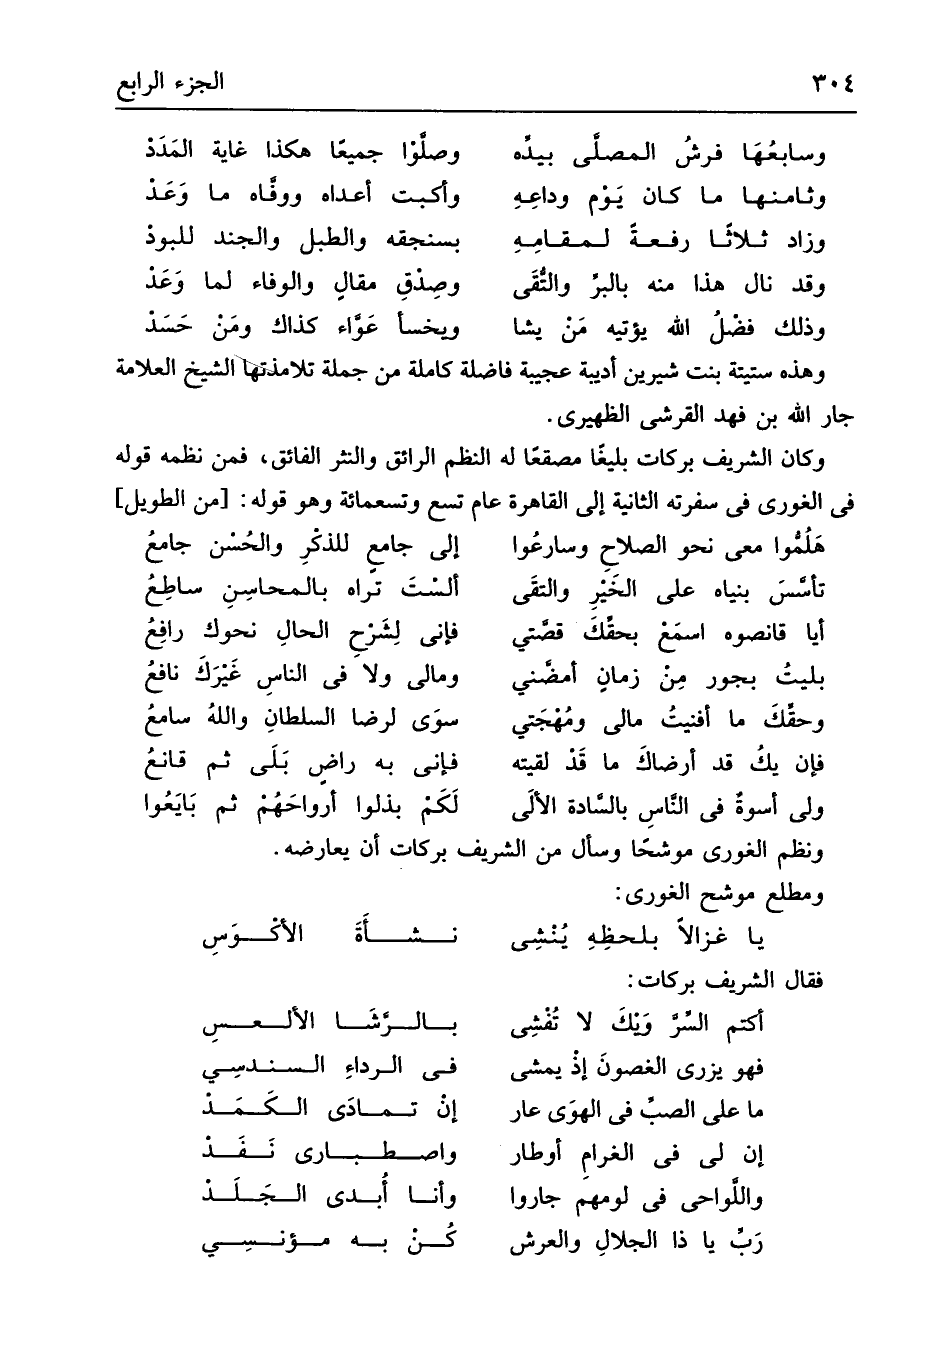 ٣٠٤ الجزء الرابع
وسابعُهَا فرشُ المصلَّى بيدِّه وصلَّوْا جميعًا هكذا غاية المَدَدْ
وثامنها ما كان يَوْم وداعِهِ وأكبت أعداه ووفَّاه ما وَعَدْ
وزاد ثلاثًا رفعةً لمقامِهِ بسنجقه والطبل والجند للبودْ
وقد نال هذا منه بالبرِّ والتُّقَى وصِدْقِ مقالٍ والوفاء لما وَعَدْ
وذلك فضْلُ الله يؤتيه مَنْ يشا ويخسأ عَوَّاء كذاك ومَنْ حَسَدْ
وهذه ستيتة بنت شيرين أديبة عجيبة فاضلة كاملة من جملة تلامذتها الشيخ العلامة
جار الله بن فهد القرشى الظهيرى.
وكان الشريف بركات بليغًا مصقعًا له النظم الرائق والنثر الفائق، فمن نظمه قوله
فى الغورى فى سفرته الثانية إلى القاهرة عام تسع وتسعمائة وهو قوله: [من الطويل]
هَلُمُّوا معى نحو الصلاحِ وسارعُوا إلى جامعٍ للذكْرِ والحُسْن جامعُ
تأسَّسَ بنياه على الخَيْرِ والتقَى ألسْتَ تراه بالمحاسِنِ ساطِعُ
أيا قانصوه اسمَعْ بحقِّكَ قصَّتي فإنى لِشَرْحِ الحالِ نحوك رافِعُ
بليتُ بجور مِنْ زمانٍ أمضَّني ومالى ولا فى الناسِ غَيْرَكَ نافعُ
وحقِّكَ ما أفنيتُ مالى ومُهْجَتي سوَى لرضا السلطانِ واللهُ سامعُ
فإن يكُ قد أرضاكَ ما قَدْ لقيته فإنى به راضٍ بَلَى ثم قانعُ
ولى أسوةٌ فى النَّاسِ بالسَّادة الأُلَى لَكَمْ بذلوا أرواحَهُمْ ثم بَايَعُوا
ونظم الغورى موشحًا وسأل من الشريف بركات أن يعارضه.
ومطلع موشح الغورى:
يا غزالاً بلحظِهِ يُنْشِى نشأَةَ الأكْوَسِ
فقال الشريف بركات:
أكتم السِّرَّ وَيْكَ لا تُفْشِى بالرَّشَا الألعسِ
فهو يزرى الغصونَ إذْ يمشى فى الرداءِ السندسِي
ما على الصبِّ فى الهوَى عار إنْ تمادَى الكَمَدْ
إن لى فى الغرامِ أوطار واصطبارى نَفَدْ
واللَّواحى فى لومهم جاروا وأنا أُبدى الجَلَدْ
رَبِّ يا ذا الجلالِ والعرش كُنْ به مؤنسِي